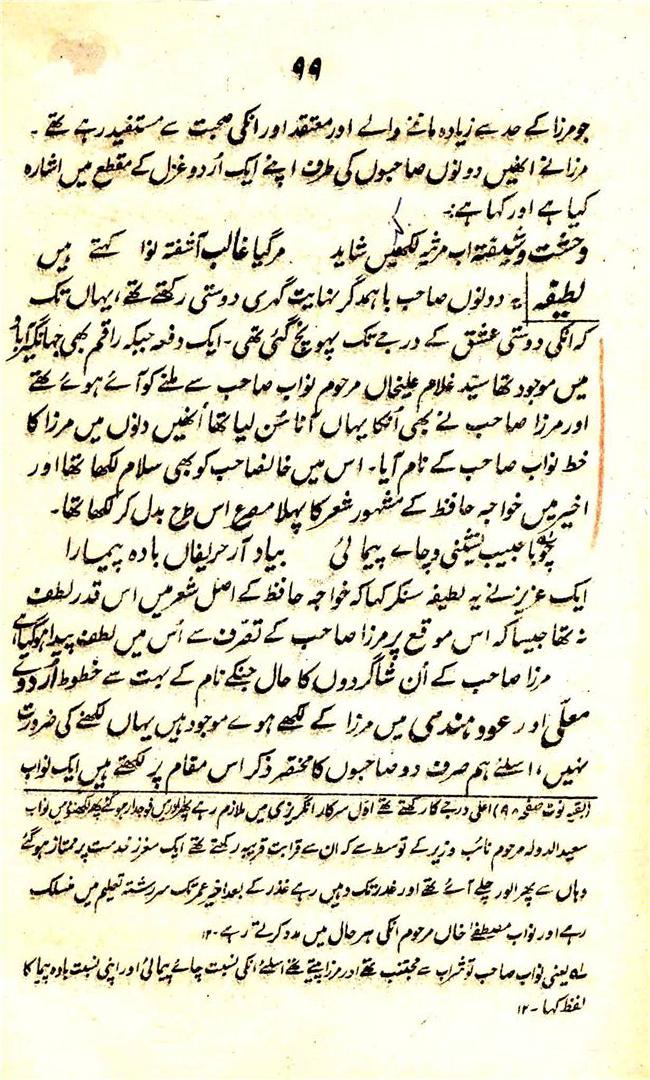 ۹۹
جو مرزا کے حد سے زیادہ ماننے والے اور معتقد اور انکی صحبت سے مستفید رہے تھے ۔
مرزا نے انھیں دونوں صاحبوں کی طرف اپنے ایک اُردو غزل کے مقطع میں اشارہ
کیا ہے اور کہا ہے :۔
وحشت و شیفتہ اب مرثیہ لکھیں شاید مرگیا غالب آشفتہ نوا کہتے ہیں
لطیفہ یہ دونوں صاحب باہمدگر نہایت گہری دوستی رکھتے تھے، یہاں تک
کہ انکی دوستی عشق کے درجے تک پہونچ گئی تھی۔ ایک دفعہ جبکہ راقم بھی جہانگیرآباد
میں موجود تھا سیّد غلام علیخاں مرحوم نواب صاحب سے ملنے کو آئے ہوئے تھے
اور مرزا صاحب نے بھی اُنکا یہاں آنا سُن لیا تھا اُنھیں دنوں میں مرزا کا
خط نواب صاحب کے نام آیا۔ اس میں خانصاحب کو بھی سلام لکھا تھا اور
اخیر میں خواجہ حافظ کے مشہور شعر کا پہلا مصرع اس طرح بدل کر لکھا تھا۔
چو با حبیب نشینی و چاے پیمائی بیاد آر حریفاں بادہ پیمارا
ایک عزیز نے یہ لطیفہ سنکر کہا کہ خواجہ حافظ کے اصل شعر میں اس قدر لطف
نہ تھا جیسا کہ اس موقع پر مرزا صاحب کے تصرّف سے اُس میں لطف پیدا ہوگیا ہے
مرزا صاحب کے اُن شاگردوں کا حال جنکے نام کے بہت سے خطوط اُردوئے
معلّی اور عود ہندی میں مرزا کے لکھے ہوے موجود ہیں یہاں لکھنے کی ضرورت
نہیں، اسلئے ہم صرف دو صاحبوں کا مختصر ذکر اس مقام پر لکھتے ہیں ایک نواب
(بقیہ نوٹ صفحہ ۹۸) اعلی درجے کا رکھتے تھے اوّل سرکار انگریزی میں ملازم رہے پھر الور میں فوجدار ہوگئے پھر لکھنؤ میں نواب
سعید الدولہ مرحوم نائب وزیر کے توسط سے کہ ان سے قرابت قریبہ رکھتے تھے ایک معزز خدمت پر ممتاز ہوگئے
وہاں سے پھر الور چلے آئے تھے اور غدر تک وہیں رہے غدر کے بعد اخیر عمر تک سررشتہ تعلیم میں منسلک
رہے اور نواب مصطفےٰ خاں مرحوم انکی ہر حال میں مدد کرتے رہے ۔۱۲
لہ یعنی نواب صاحب تو شراب سے مجتنب تھے اور مرزا پیتے تھے اسلئے انکی نسبت چاے پیمائی اور اپنی نسبت بادہ پیما کا
لفظ کہا ۔۱۲